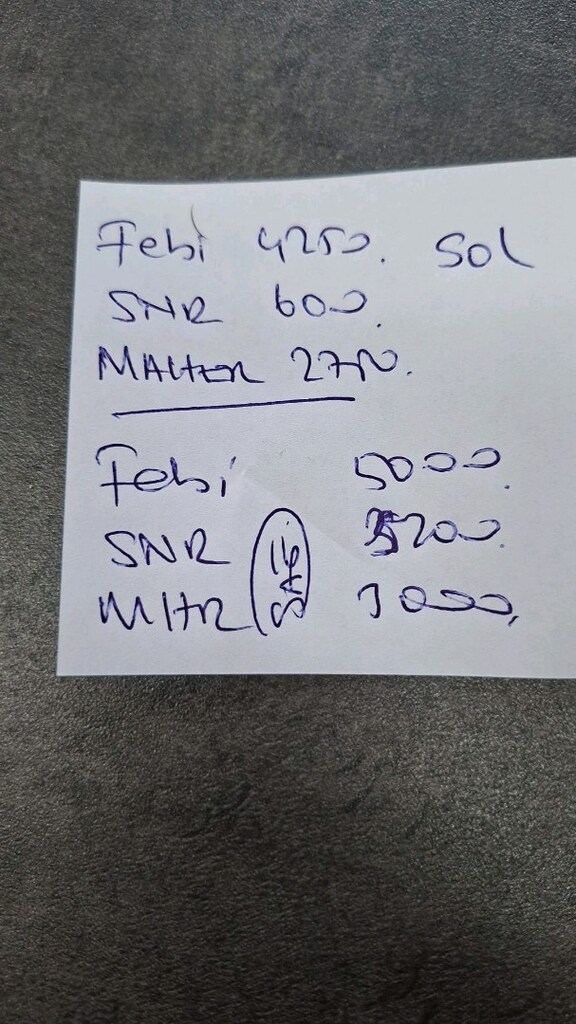 Febi 4250. Sol
SNR 600.
MAHER 2750.
Febi 5000.
SNR 5200.
MHR 3000.
SAĞ